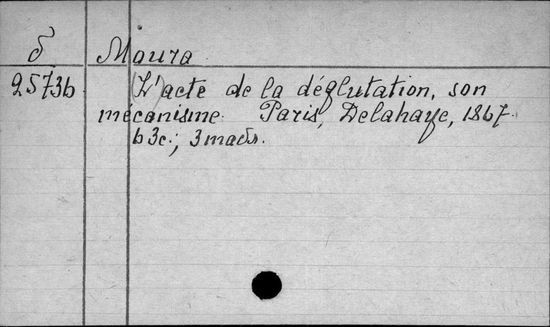 б Moura
2573b (L')acte de la déglutation, son
mécanisme. Paris, Delahaye, 1867.
63c.;